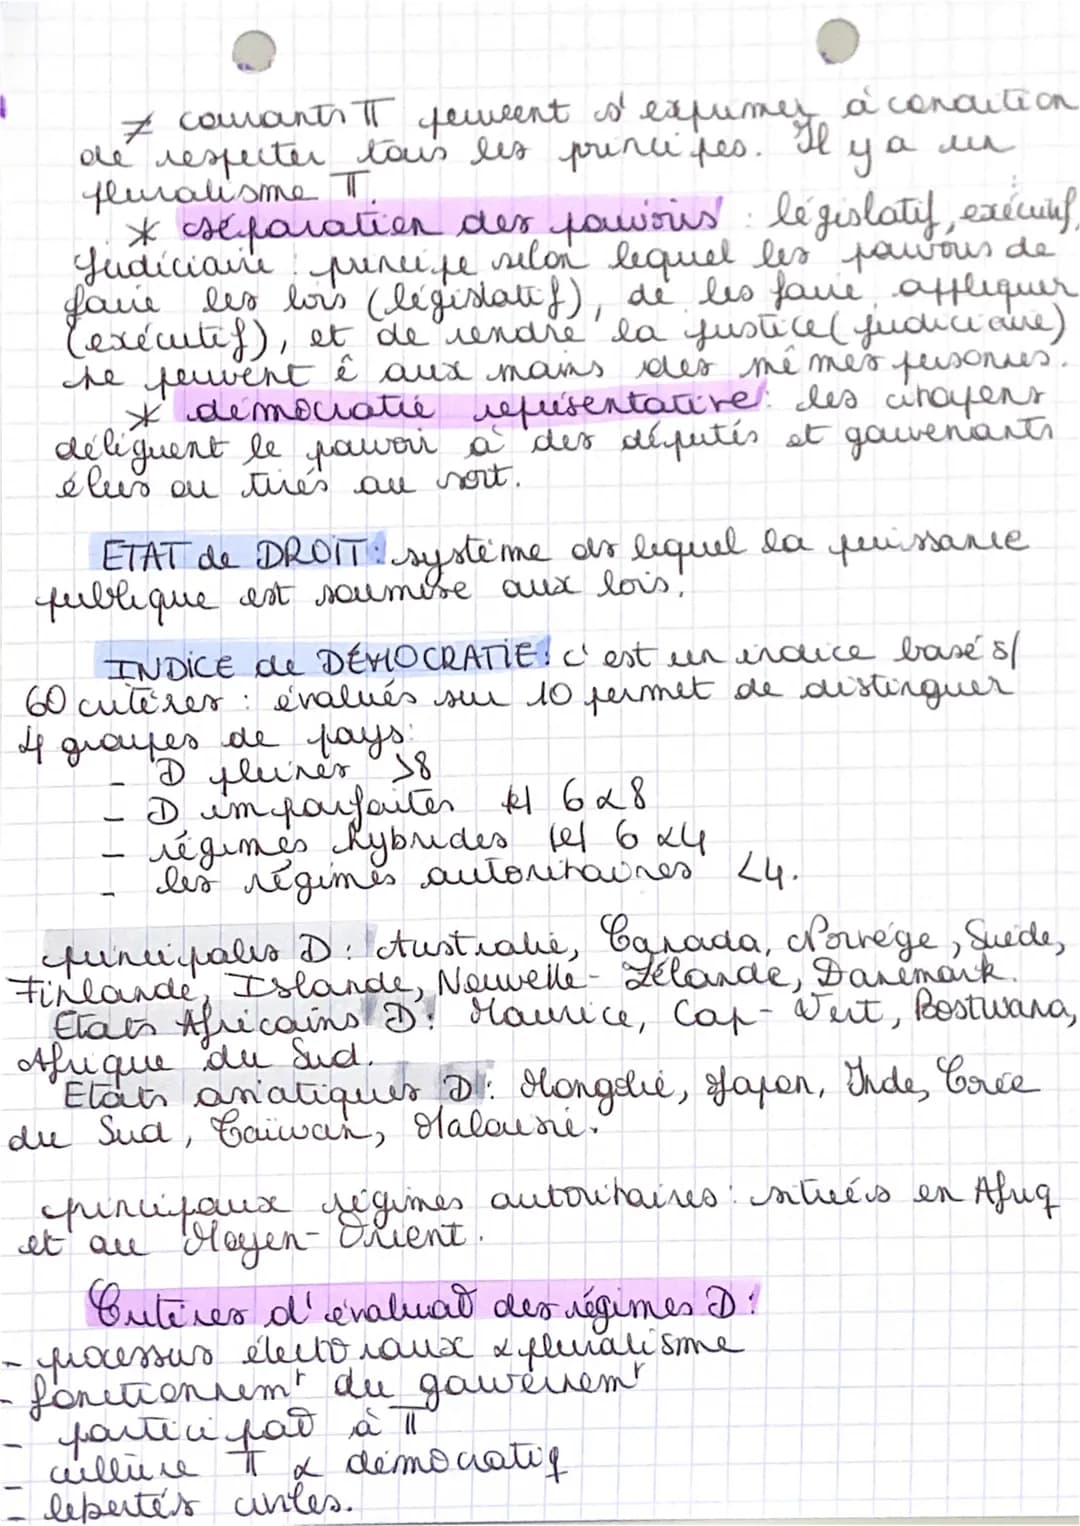 ≠ courants π peuvent s'exprimer à condition
de respecter tous les principes. Il y a un
pluralisme π.
* séparation des pouvoirs : législatif, exécutif,
judiciaire : principe selon lequel les pouvoirs de
faire les lois (législatif), de les faire appliquer
(exécutif), et de rendre la justice (judiciaire)
ne peuvent ê aux mains des mêmes personnes.
* démocratie représentative : les citoyens
délèguent le pouvoir à des députés et gouvenants
élus ou tirés au sort.
ETAT de DROIT : système ds lequel la puissance
publique est soumise aux lois.
INDICE de DÉMOCRATIE : c'est un indice basé s/
60 critères : évalués sur 10 permet de distinguer
4 groupes de pays :
- D pleines >8
- D imparfaites 6 & 8
- régimes hybrides 6 & 4
- les régimes autoritaires <4.
principales D : Australie, Canada, Norvège, Suède,
Finlande, Islande, Nouvelle-Zélande, Danemark.
Etats Africains D : Maurice, Cap-Vert, Bostwana,
Afrique du Sud.
Etats asiatiques D : Mongolie, Japon, Inde, Corée
du Sud, Taïwan, Malaisie.
principaux régimes autoritaires : situés en Afriq
et au Moyen-Orient.
Critères d'évaluat° des régimes D :
- processus électoraux & pluralisme
- fonctionnemt du gouvernemt
- participat° à π
- culture π & démocratiq
- libertés civiles.